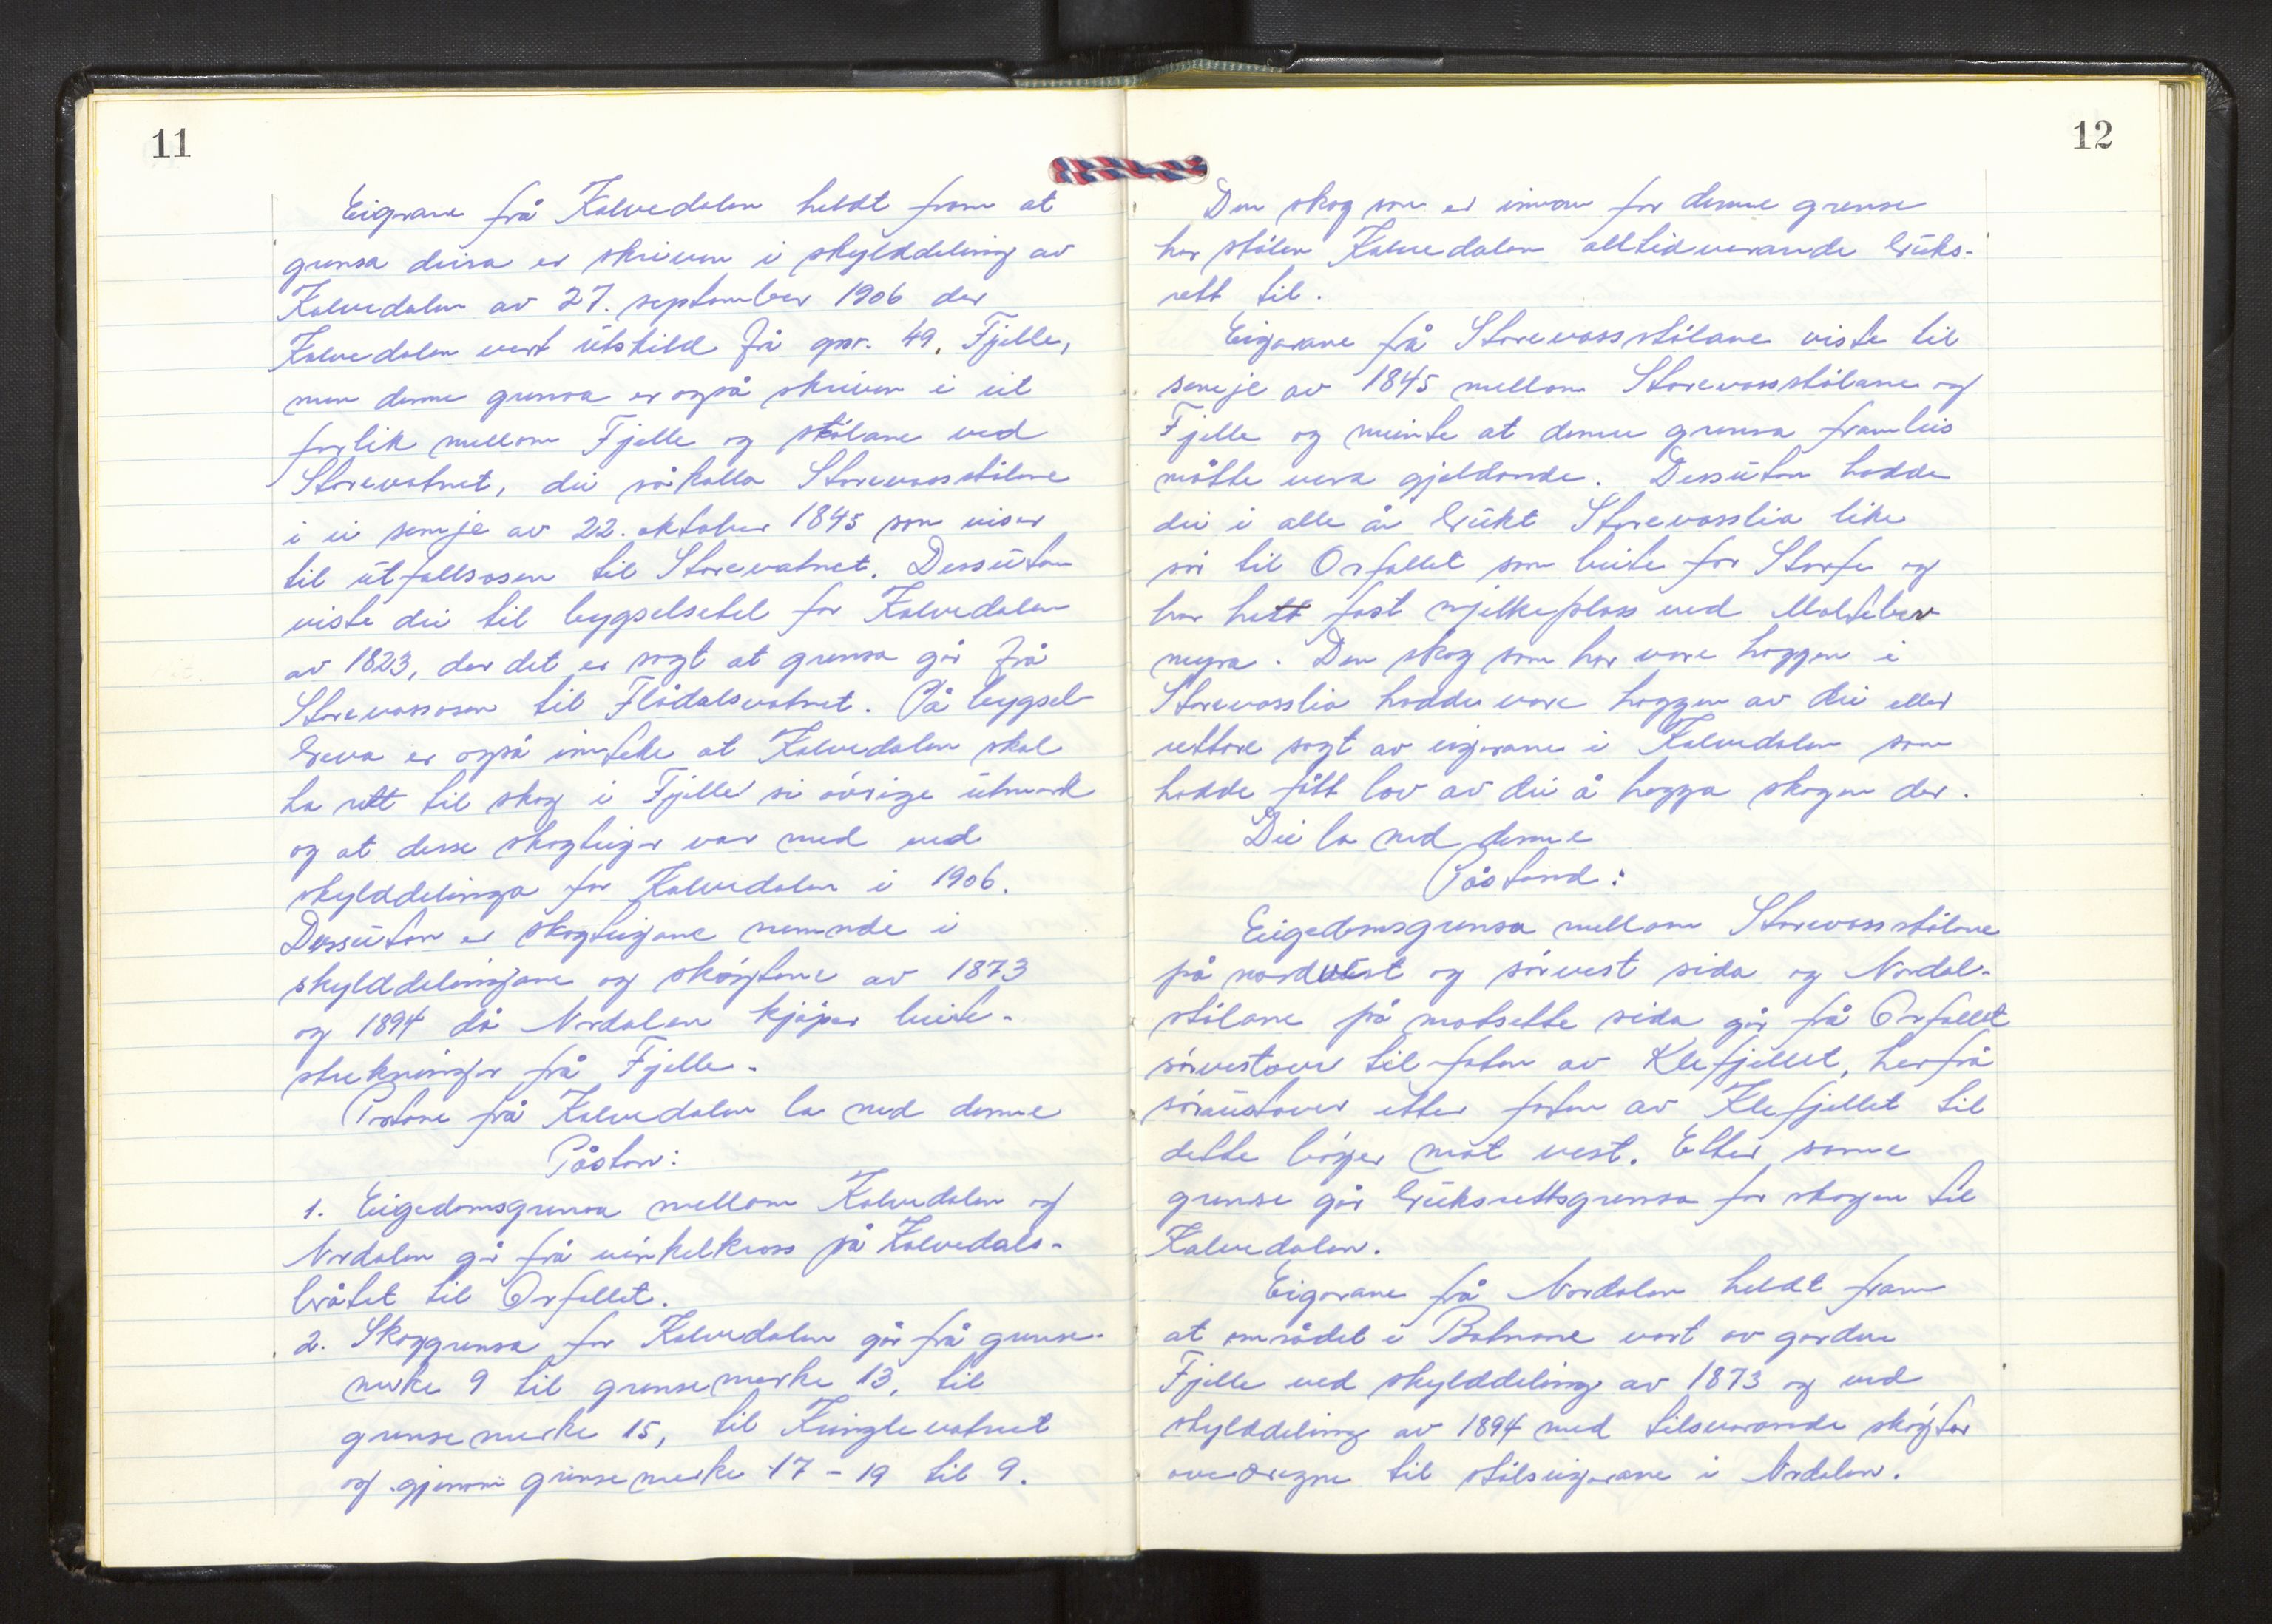 11
Eigarane frå Kalvedalen heldt fram at
grensa deira er skriven i skylddeling av
Kalvedalen av 27. september 1906 der
Kalvedalen vert utskild frå gnr. 49, Fjelle,
men denne grensa er også skriven i eit
forlik mellom Fjelle og stølane ved
Storevatnet, dei såkalla Storevasstølane
i ei semje av 22. oktober 1845 som viser
til utfallsosen til Storevatnet. Dessutan
viste dei til bygselsetel for Kalvedalen
av 1823, der det er sagt at grensa går frå
Storevassosen til Flådalsvatnet. På bygsel-
breva er også innteke at Kalvedalen skal
ha rett til skog i Fjelle si øvrige utmark
og at desse skogteigar var med ved
skylddelinga for Kalvedalen i 1906.
Dessutan er skogteigane nemnde i
skylddelingane og skøytene av 1873
og 1894 då Nordalen kjøper beite-
strekningar frå Fjelle.
Partane frå Kalvedalen la ned denne
Påstan:
1. Eigedomsgrensa mellom Kalvedalen og
Nordalen går frå vinkelkross på Kalvedals-
bråtet til Orfallet.
2. Skoggrensa for Kalvedalen går frå grense-
merke 9 til grensemerke 13, til
grensemerke 15, til Kringlevatnet
og gjenom grensemerke 17 - 19 til 9.
12
Den skog som er innan for denne grense
har stølen Kalvedalen alltidverande bruks-
rett til.
Eigarane frå Storevassstølane viste til
semje av 1845 mellom Storevassstølane og
Fjelle og meinte at denne grensa framleis
måtte vera gjeldande. Dessutan hadde
dei i alle år brukt Storevasslia like
sør til Orfallet som beite for Storfe og
har hett fast mjelkeplass ved Molteber
myra. Den skog som har vore hoggen i
Storevasslia hadde vore hoggen av dei eller
rettare sagt av eigarane i Kalvedalen som
hadde fått lov av dei å hogga skogen der.
Dei la ned denne
Påstand:
Eigedomsgrensa mellom Storevassstølane
på nordvest og sørvest sida og Nordal-
stølane på motsette sida går frå Orfallet
sørvestover til foten av Klefjellet, herfrå
søraustover etter foten av Klefjellet til
dette bøyer mot vest. Etter same
grense går bruksrettsgrensa for skogen til
Kalvedalen.
Eigarane frå Nordalen heldt fram
at området i Botnane vart av garden
Fjelle ved skylddeling av 1873 og ved
skylddeling av 1894 med tilsvarande skøyter
overdregne til stølseigarane i Nordalen.